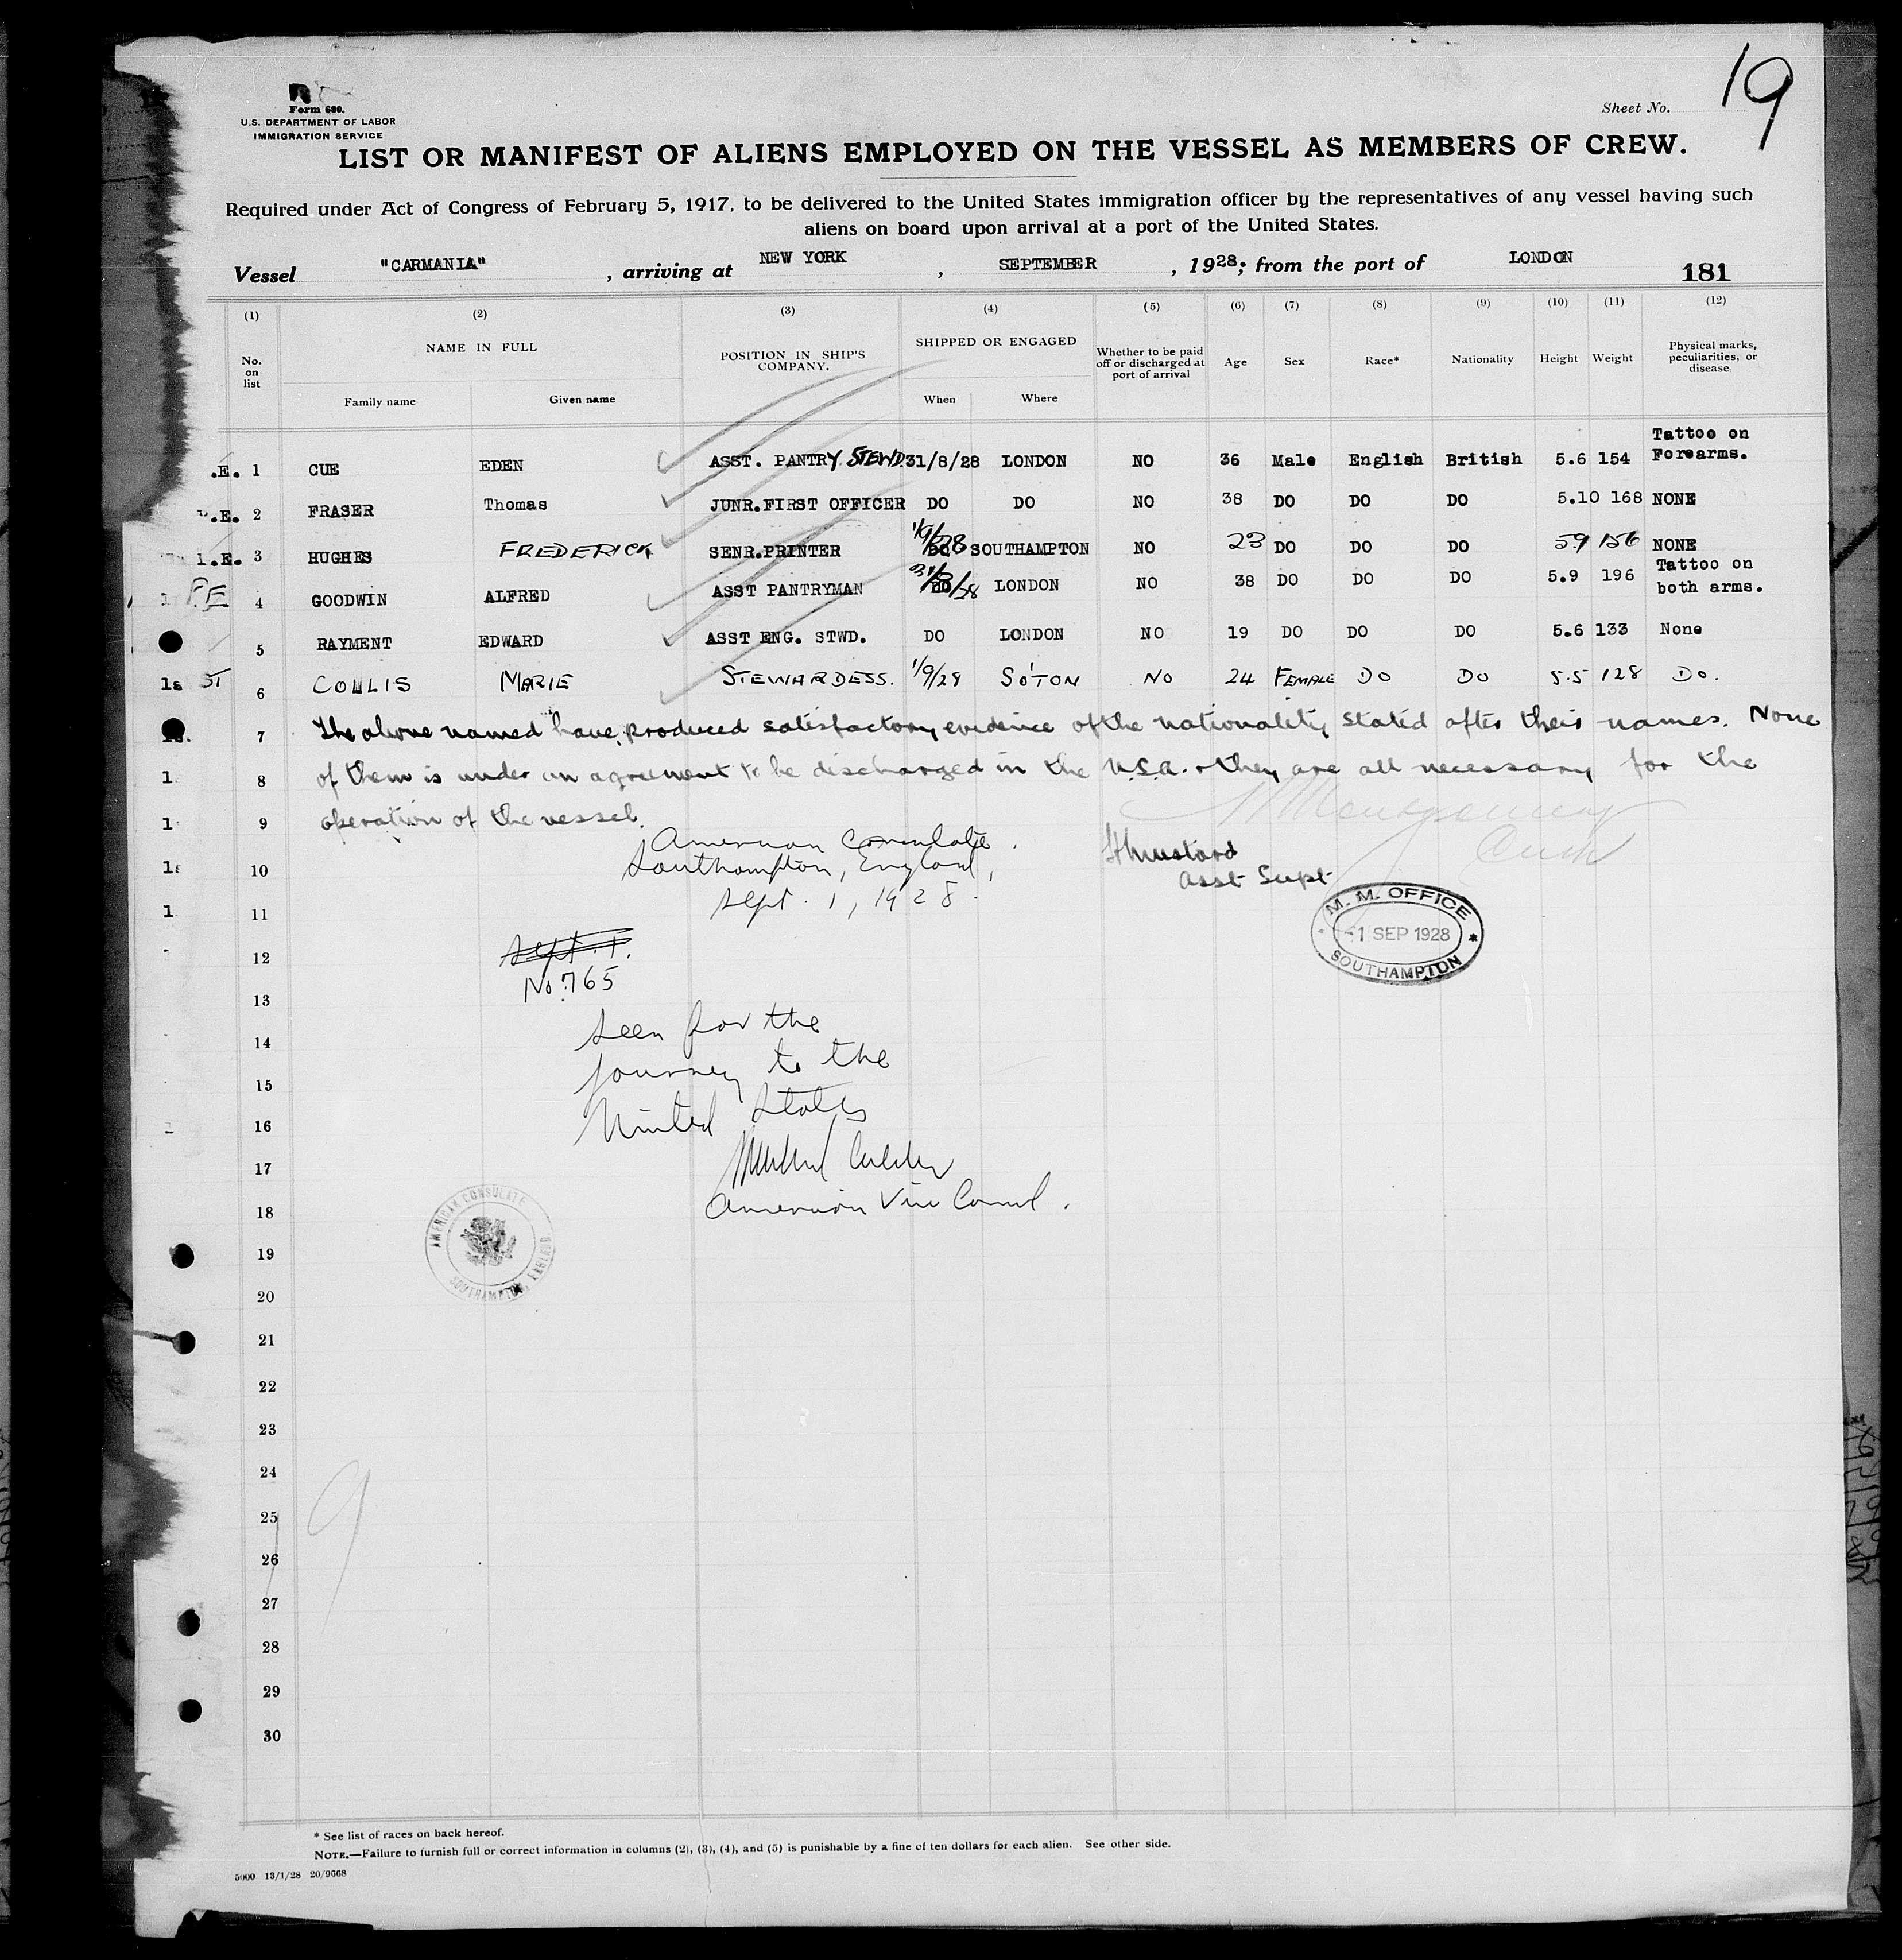 Form 680.
U.S. DEPARTMENT OF LABOR
IMMIGRATION SERVICE
Sheet No. 19
LIST OR MANIFEST OF ALIENS EMPLOYED ON THE VESSEL AS MEMBERS OF CREW.
Required under Act of Congress of February 5, 1917, to be delivered to the United States immigration officer by the representatives of any vessel having such
aliens on board upon arrival at a port of the United States.
Vessel "CARMANIA", arriving at NEW YORK, SEPTEMBER, 1928; from the port of LONDON 181
(1) (2) (3) (4) (5) (6) (7) (8) (9) (10) (11) (12)
No. on list NAME IN FULL Family name Given name POSITION IN SHIP'S COMPANY. SHIPPED OR ENGAGED When Where Whether to be paid off or discharged at port of arrival Age Sex Race* Nationality Height Weight Physical marks, peculiarities, or disease
.E. 1 CUE EDEN ASST. PANTRY STEWD. 31/8/28 LONDON NO 36 Male English British 5.6 154 Tattoo on Forearms.
.E. 2 FRASER Thomas JUNR.FIRST OFFICER DO DO NO 38 DO DO DO 5.10 168 NONE
.E. 3 HUGHES FREDERICK SENR.PRINTER 1/9/28 SOUTHAMPTON NO 23 DO DO DO 5.9 156 NONE
PE 4 GOODWIN ALFRED ASST PANTRYMAN 31/8/28 LONDON NO 38 DO DO DO 5.9 196 Tattoo on both arms.
5 RAYMENT EDWARD ASST ENG. STWD. DO LONDON NO 19 DO DO DO 5.6 133 None
ST 6 COLLIS MARIE STEWARDESS. 1/9/28 SO'TON NO 24 FEMALE DO DO 5.5 128 DO.
7 The above named have produced satisfactory evidence of the nationality stated after their names. None
8 of them is under an agreement to be discharged in the U.S.A. & they are all necessary for the
9 operation of the vessel.
American Consulate.
10 Southampton, England,
Asst Supt
11 Sept. 1, 1928.
M. M. OFFICE
1 SEP 1928
SOUTHAMPTON
12 Sept. 1.
No. 765
13
Seen for the
14
journey to the
15
United States
16
17
American Vice Consul.
18
AMERICAN CONSULATE
SOUTHAMPTON, ENGLAND
19
20
21
22
23
24
25
26
27
28
29
30
9
* See list of races on back hereof.
NOTE.—Failure to furnish full or correct information in columns (2), (3), (4), and (5) is punishable by a fine of ten dollars for each alien. See other side.
5000 13/1/28 20/9668